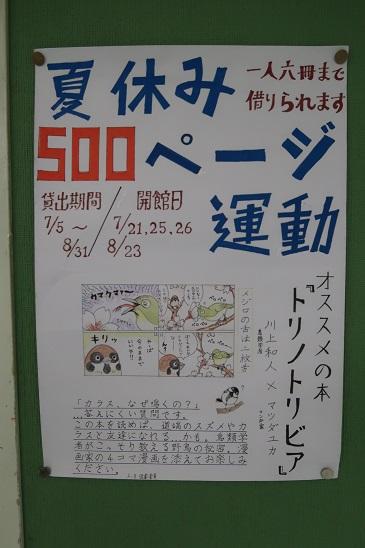 夏休み
一人六冊まで
借りられます
500ページ
運動
貸出期間／開館日
7/5～8/31
7/21,25,26
8/23
オススメの本
『トリノトリビア』
川上和人×マツダユカ
鳥類学者
マンガ家
メジロの舌は二枚舌
ウマウマァ〜
キリッ
「カラス、なぜ鳴くの？」
…答えにくい質問です。
この本を読めば、道端のスズメやカ
ラスと友達になれる…かも。鳥類学
者がこっそり教える野鳥の秘密、漫
画家の4コマ漫画を添えてお楽しみ
ください。